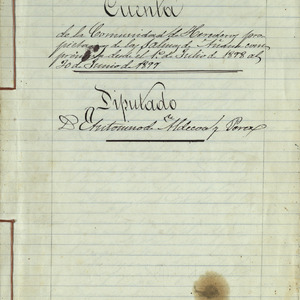 Cuenta
de la Comunidad de Herederos pro
pietarios de las Salinas de Añana com
prensiva desde el 1º de Julio de 1898 al
30 de Junio de 1899
Diputado
Dn Antonino de Aldecoa y Perez